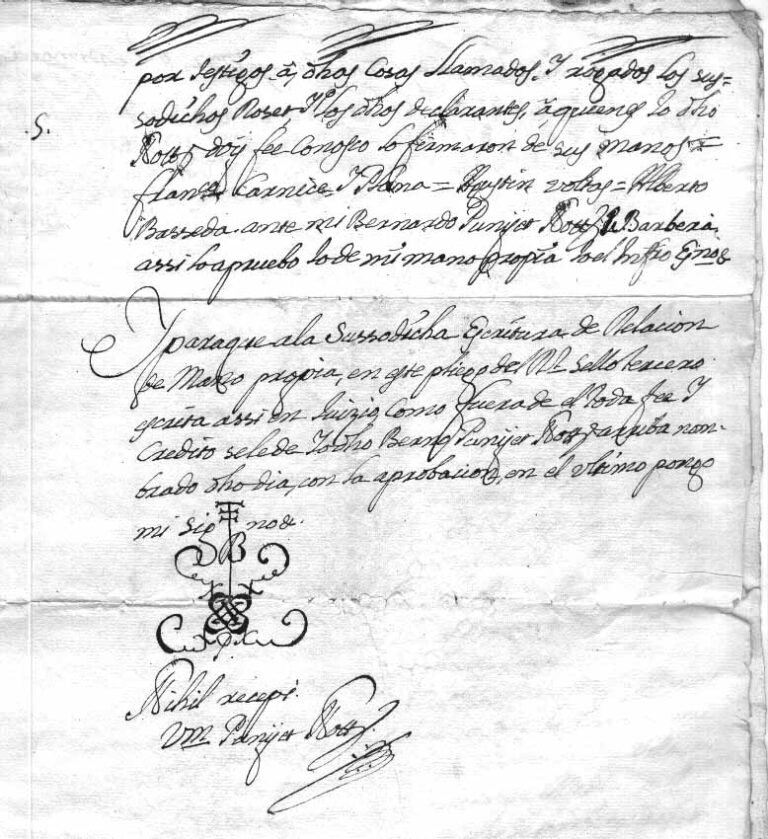 por testigos â, dhas Cosas llamados, Y rogados los sus=
sodichos Roset, Y los dhos declarantes, â quienes Yo dho
Nott. doy feé Conosco lo firmaron de sus manos =
Carnice, Y = Agustin voltas = Alberto
Basseda. ante mi Bernardo Punyet Nott. Barberá.
assi lo apruebo Yo de mi mano propia Yo el Infro
S.
Y paraque a la Sussodicha Escritura de Relacion
de Mano propia, en este pliego del Rl. sello tercero
escrita assi en Juizio Como fuera de el toda feé Y
Credito se le de Yo dho Bernd. Punyet Nott. arriba nom-
brado dho dia, con la aprobacion, en el vltimo pongo
mi sig no&.
B
Nihil recepi.
Punyet Nott.